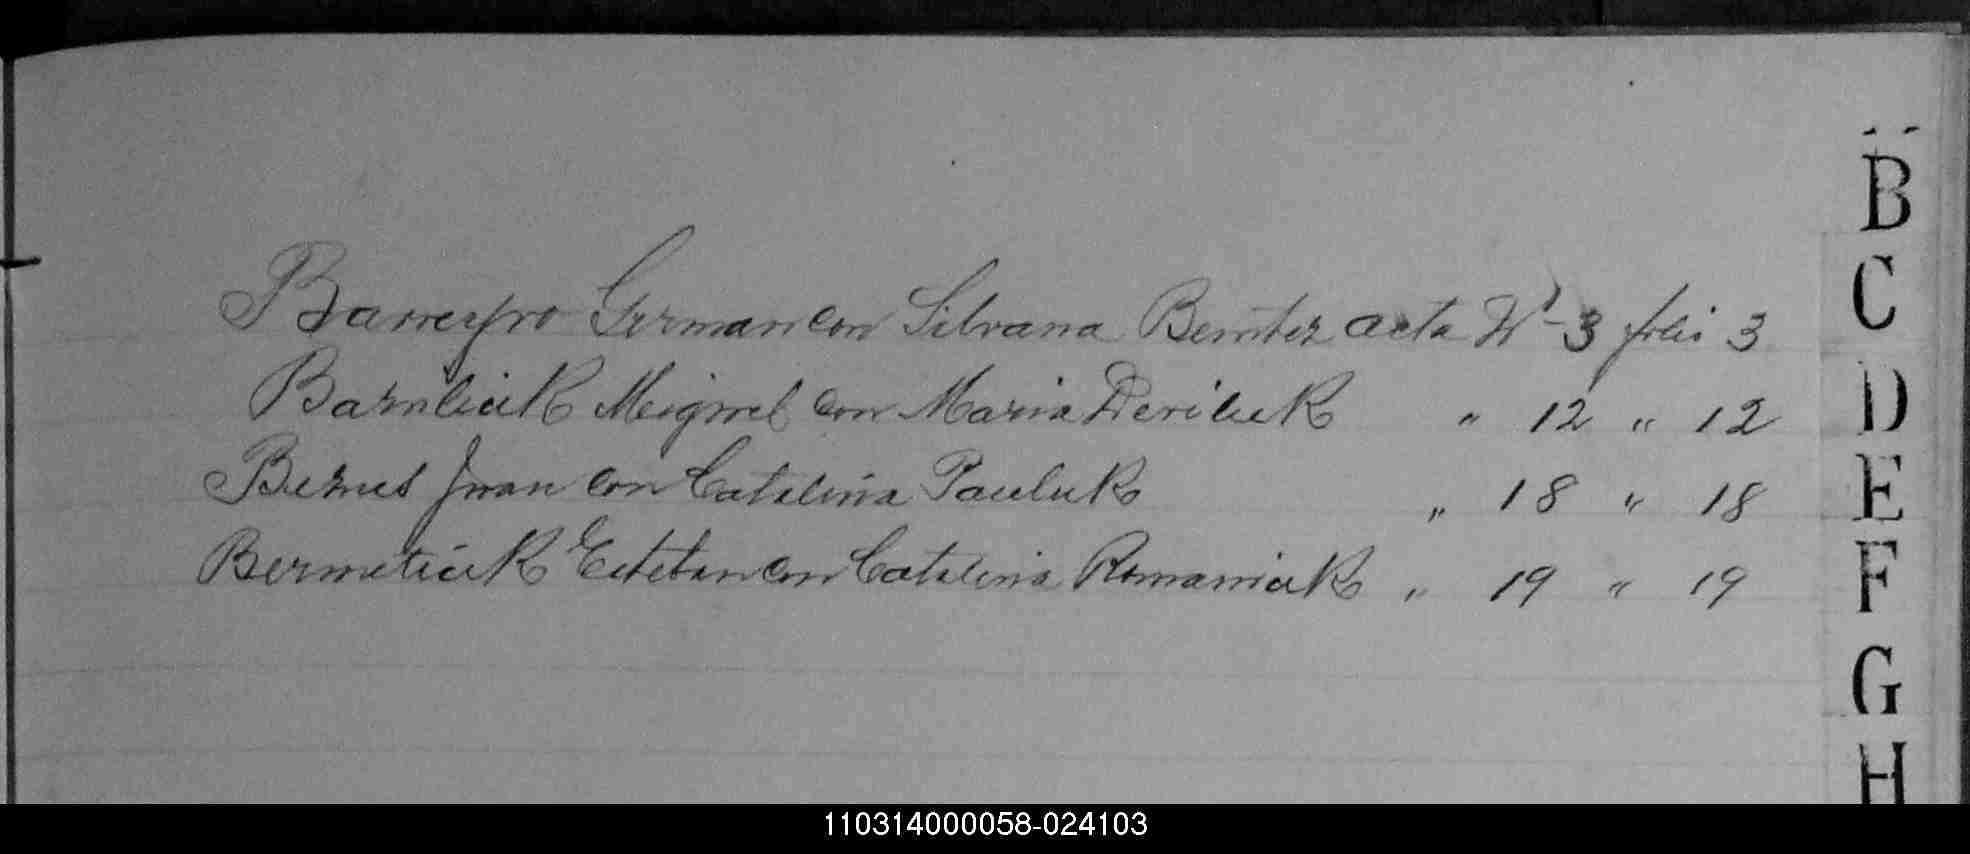 B
C
D
E
F
G
H
Barreyro German con Silvana Benitez acta Nº 3 folio 3
Miguel con Maria " 12 " 12
Juan con Catalina Pauluk " 18 " 18
Esteban con Catalina Romaniuk " 19 " 19
110314000058-024103